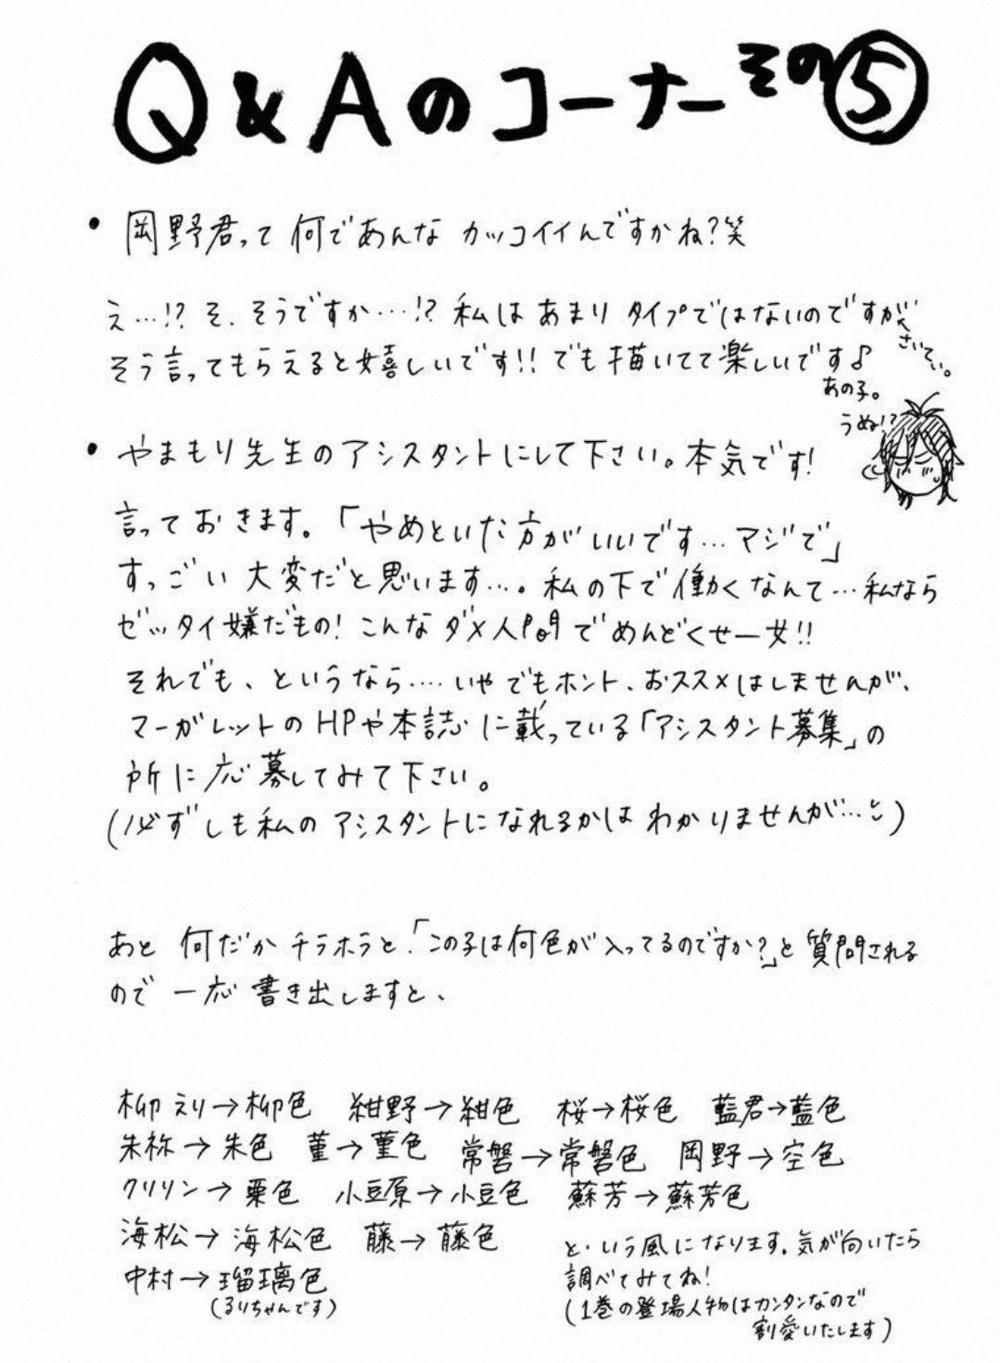 Q&Aのコーナーその⑤
・岡野君って何であんなカッコイイんですかね?笑
え…!?そ、そうですか…!?私はあまりタイプではないのですが
そう言ってもらえると嬉しいです!!でも描いてて楽しいです♪
さいてい。
あの子。
うぬ!?
・やまもり先生のアシスタントにして下さい。本気です!
言っておきます。「やめといた方がいいです…マジで」
すっごい大変だと思います…。私の下で働くなんて…私なら
ゼッタイ嫌だもの!こんなダメ人間でめんどくせー女!!
それでも、というなら‥‥いやでもホント、おススメはしませんが、
マーガレットのHPや本誌に載っている「アシスタント募集」の
所に応募してみて下さい。
(必ずしも私のアシスタントになれるかはわかりませんが…)
あと何だかチラホラと、「この子は何色が入ってるのですか?」と質問される
ので一応書き出しますと、
柳えり→柳色 紺野→紺色 桜→桜色 藍君→藍色
朱祢→朱色 菫→菫色 常磐→常磐色 岡野→空色
クリリン→栗色 小豆原→小豆色 蘇芳→蘇芳色
海松→海松色 藤→藤色
中村→瑠璃色
(るりちゃんです)
と、いう風になります。気が向いたら
調べてみてね!
(1巻の登場人物はカンタンなので
割愛いたします)